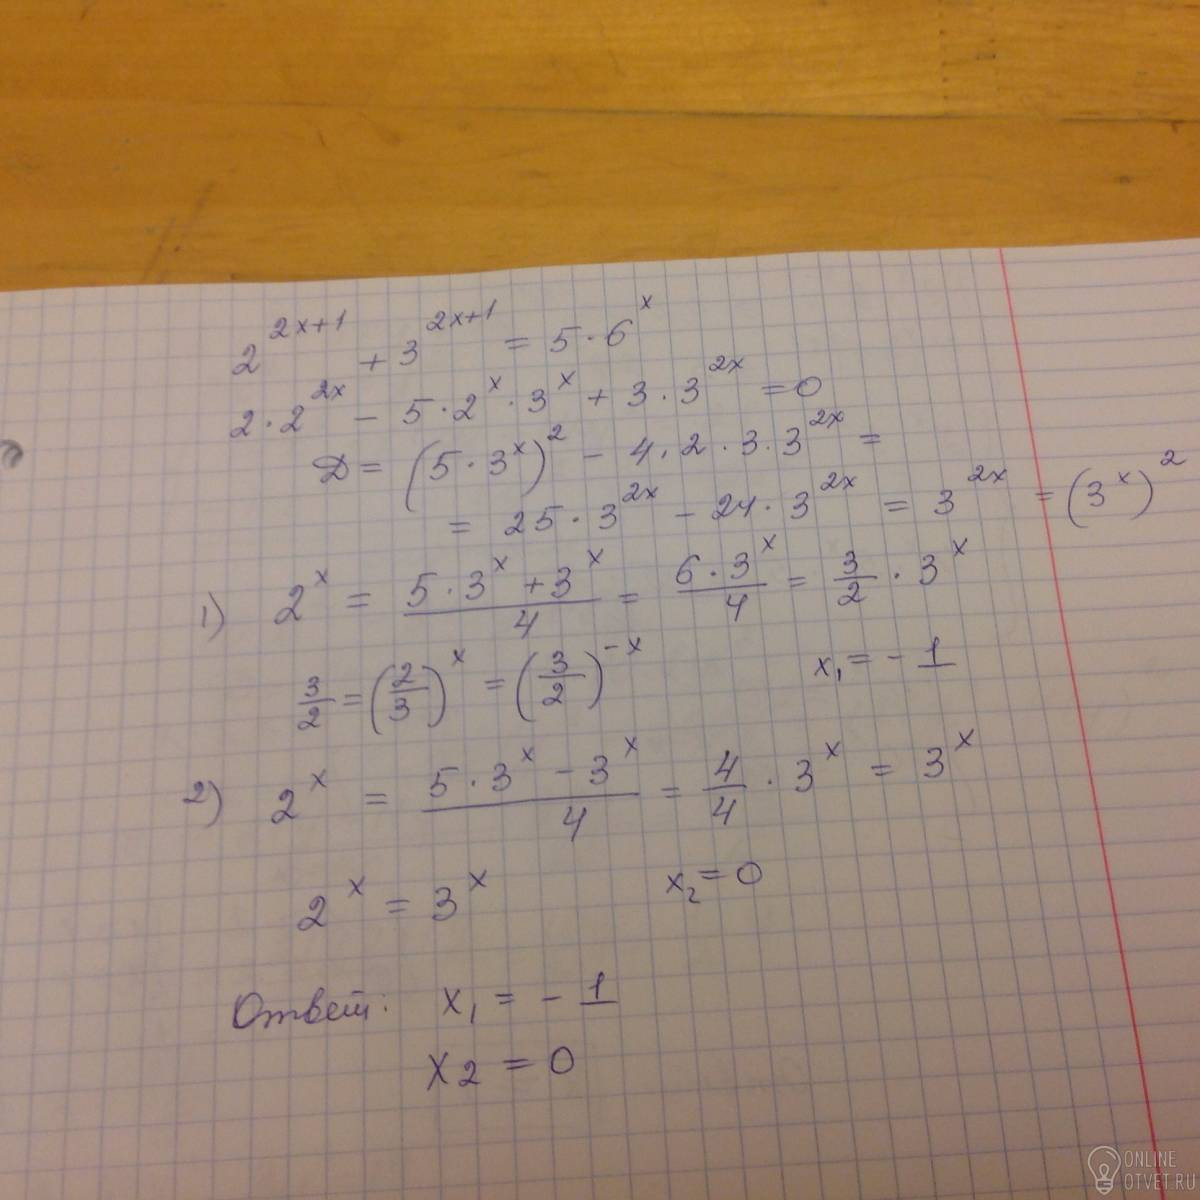 2^(2x+1) + 3^(2x+1) = 5 · 6^x
2 · 2^(2x) - 5 · 2^x · 3^x + 3 · 3^(2x) = 0
D = (5 · 3^x)^2 - 4 · 2 · 3 · 3^(2x) =
= 25 · 3^(2x) - 24 · 3^(2x) = 3^(2x) = (3^x)^2
1) 2^x = (5 · 3^x + 3^x)/4 = (6 · 3^x)/4 = 3/2 · 3^x
3/2 = (2/3)^x = (3/2)^(-x) x₁ = - 1
2) 2^x = (5 · 3^x - 3^x)/4 = 4/4 · 3^x = 3^x
2^x = 3^x x₂ = 0
Ответ: x₁ = - 1
x2 = 0
ONLINE
OTVET.RU